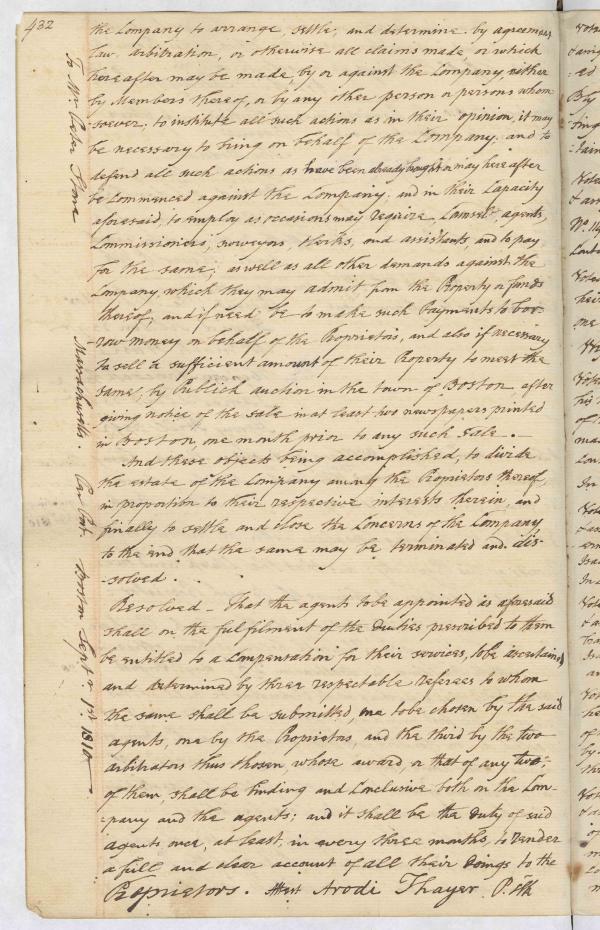 432
the Company to arrange, settle, and determine by agreement
Law arbitration, or otherwise all claims made or which
hereafter may be made, by or against the Company, either
by Members thereof, or by any other person or persons whom-
soever; to institute all such actions as in their opinion, it may
be necessary to bring on behalf of the Company; and to
defend all such actions as have been already brought or may here after
be Commenced against the Company; and in their Capacity
aforesaid, to employ as occasions may require, Counsel, agents,
Commissioners, surveyors, Clerks, and assistants, and to pay
for the same; as well as all other demands against the
Company, which they may admit from the Property or funds
thereof; and if need be to make such Payments to bor-
-row money on behalf of the Proprietors, and also if necessary
to sell a sufficient amount of their Property to meet the
same, by Publick auction in the town of Boston after
giving notice of the sale in at least two newspapers printed
in Boston, one month prior to any such Sale.
And these objects being accomplished, to divide
the estate of the Company among the Proprietors thereof,
in proportion to their respective interests therein, and
finally to settle and close the Concerns of the Company
to the end that the same may be terminated and dis-
-solved.
Resolved - That the agents to be appointed as aforesaid
shall on the fulfilment of the Duties prescribed to them
be entitled to a Compensation for their services, to be ascertained
and determined by three respectable referees to whom
the same shall be submitted, one to be chosen by the said
agents, one by the Proprietors, and the third by the two
arbitrators thus chosen, whose award, or that of any two
of them, shall be binding and Conclusive both on the Com-
-pany and the agents; and it shall be the duty of said
agents once, at least, in every three months, to render
a full and clear account of all their doings to the
Proprietors. Attest Arodi Thayer. P. Clk
To Mr. Peter Stone
Massachusetts. Boston Sept. 1st. 1810